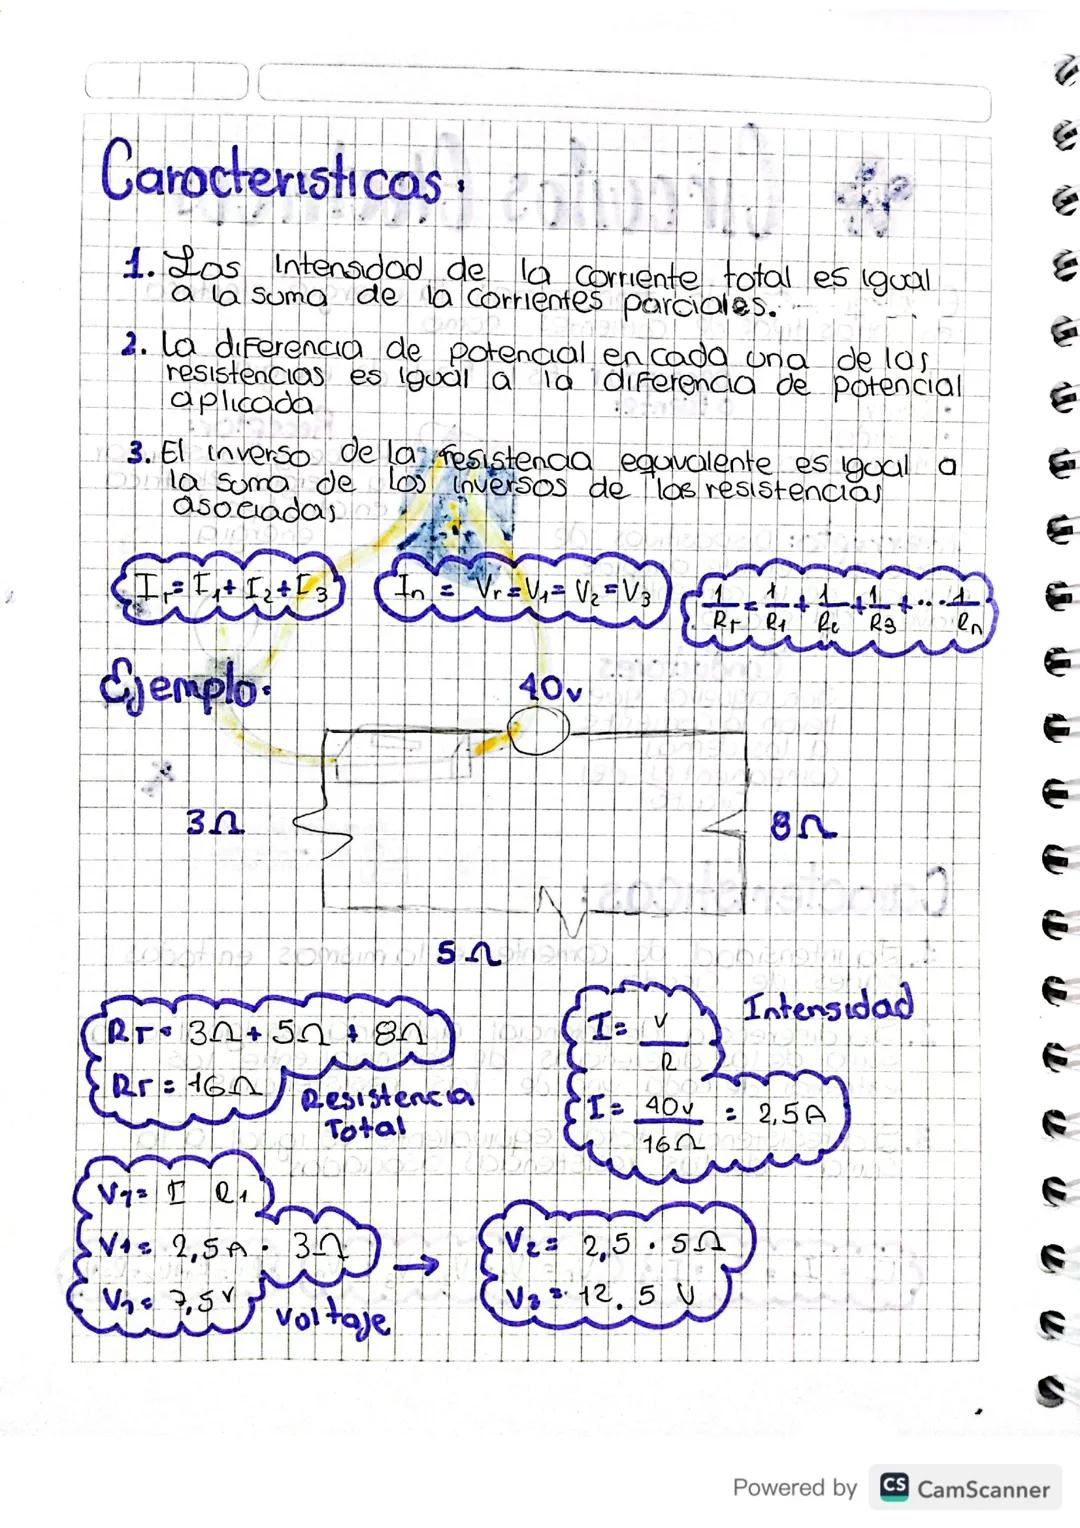 Caracteristicas.
1. Las intensidad de la corriente total es igual
a la suma de la corrientes parciales.
2. La diferencia de potencial en cada una de las
resistencias es igual a la diferencia de potencial
aplicada
3. El inverso de la resistencia equivalente es igual a
la suma de los inversos de los resistencias
asociadas
Ir = I1 + I2 + I3
In = Vr = V1 = V2 = V3
1/RT = 1/R1 + 1/R2 + 1/R3 + ... 1/Rn
Ejemplo.
40v
3Ω
8Ω
5Ω
RT = 3Ω + 5Ω + 8Ω
RT = 16Ω
Resistencia
Total
Intensidad
I = V/R
I = 40v/16Ω = 2,5A
V1 = I R1
V1 = 2,5A . 3Ω
V1 = 7,5V
Voltaje
→
V2 = 2,5 . 5Ω
V2 = 12.5 V
Powered by CS CamScanner